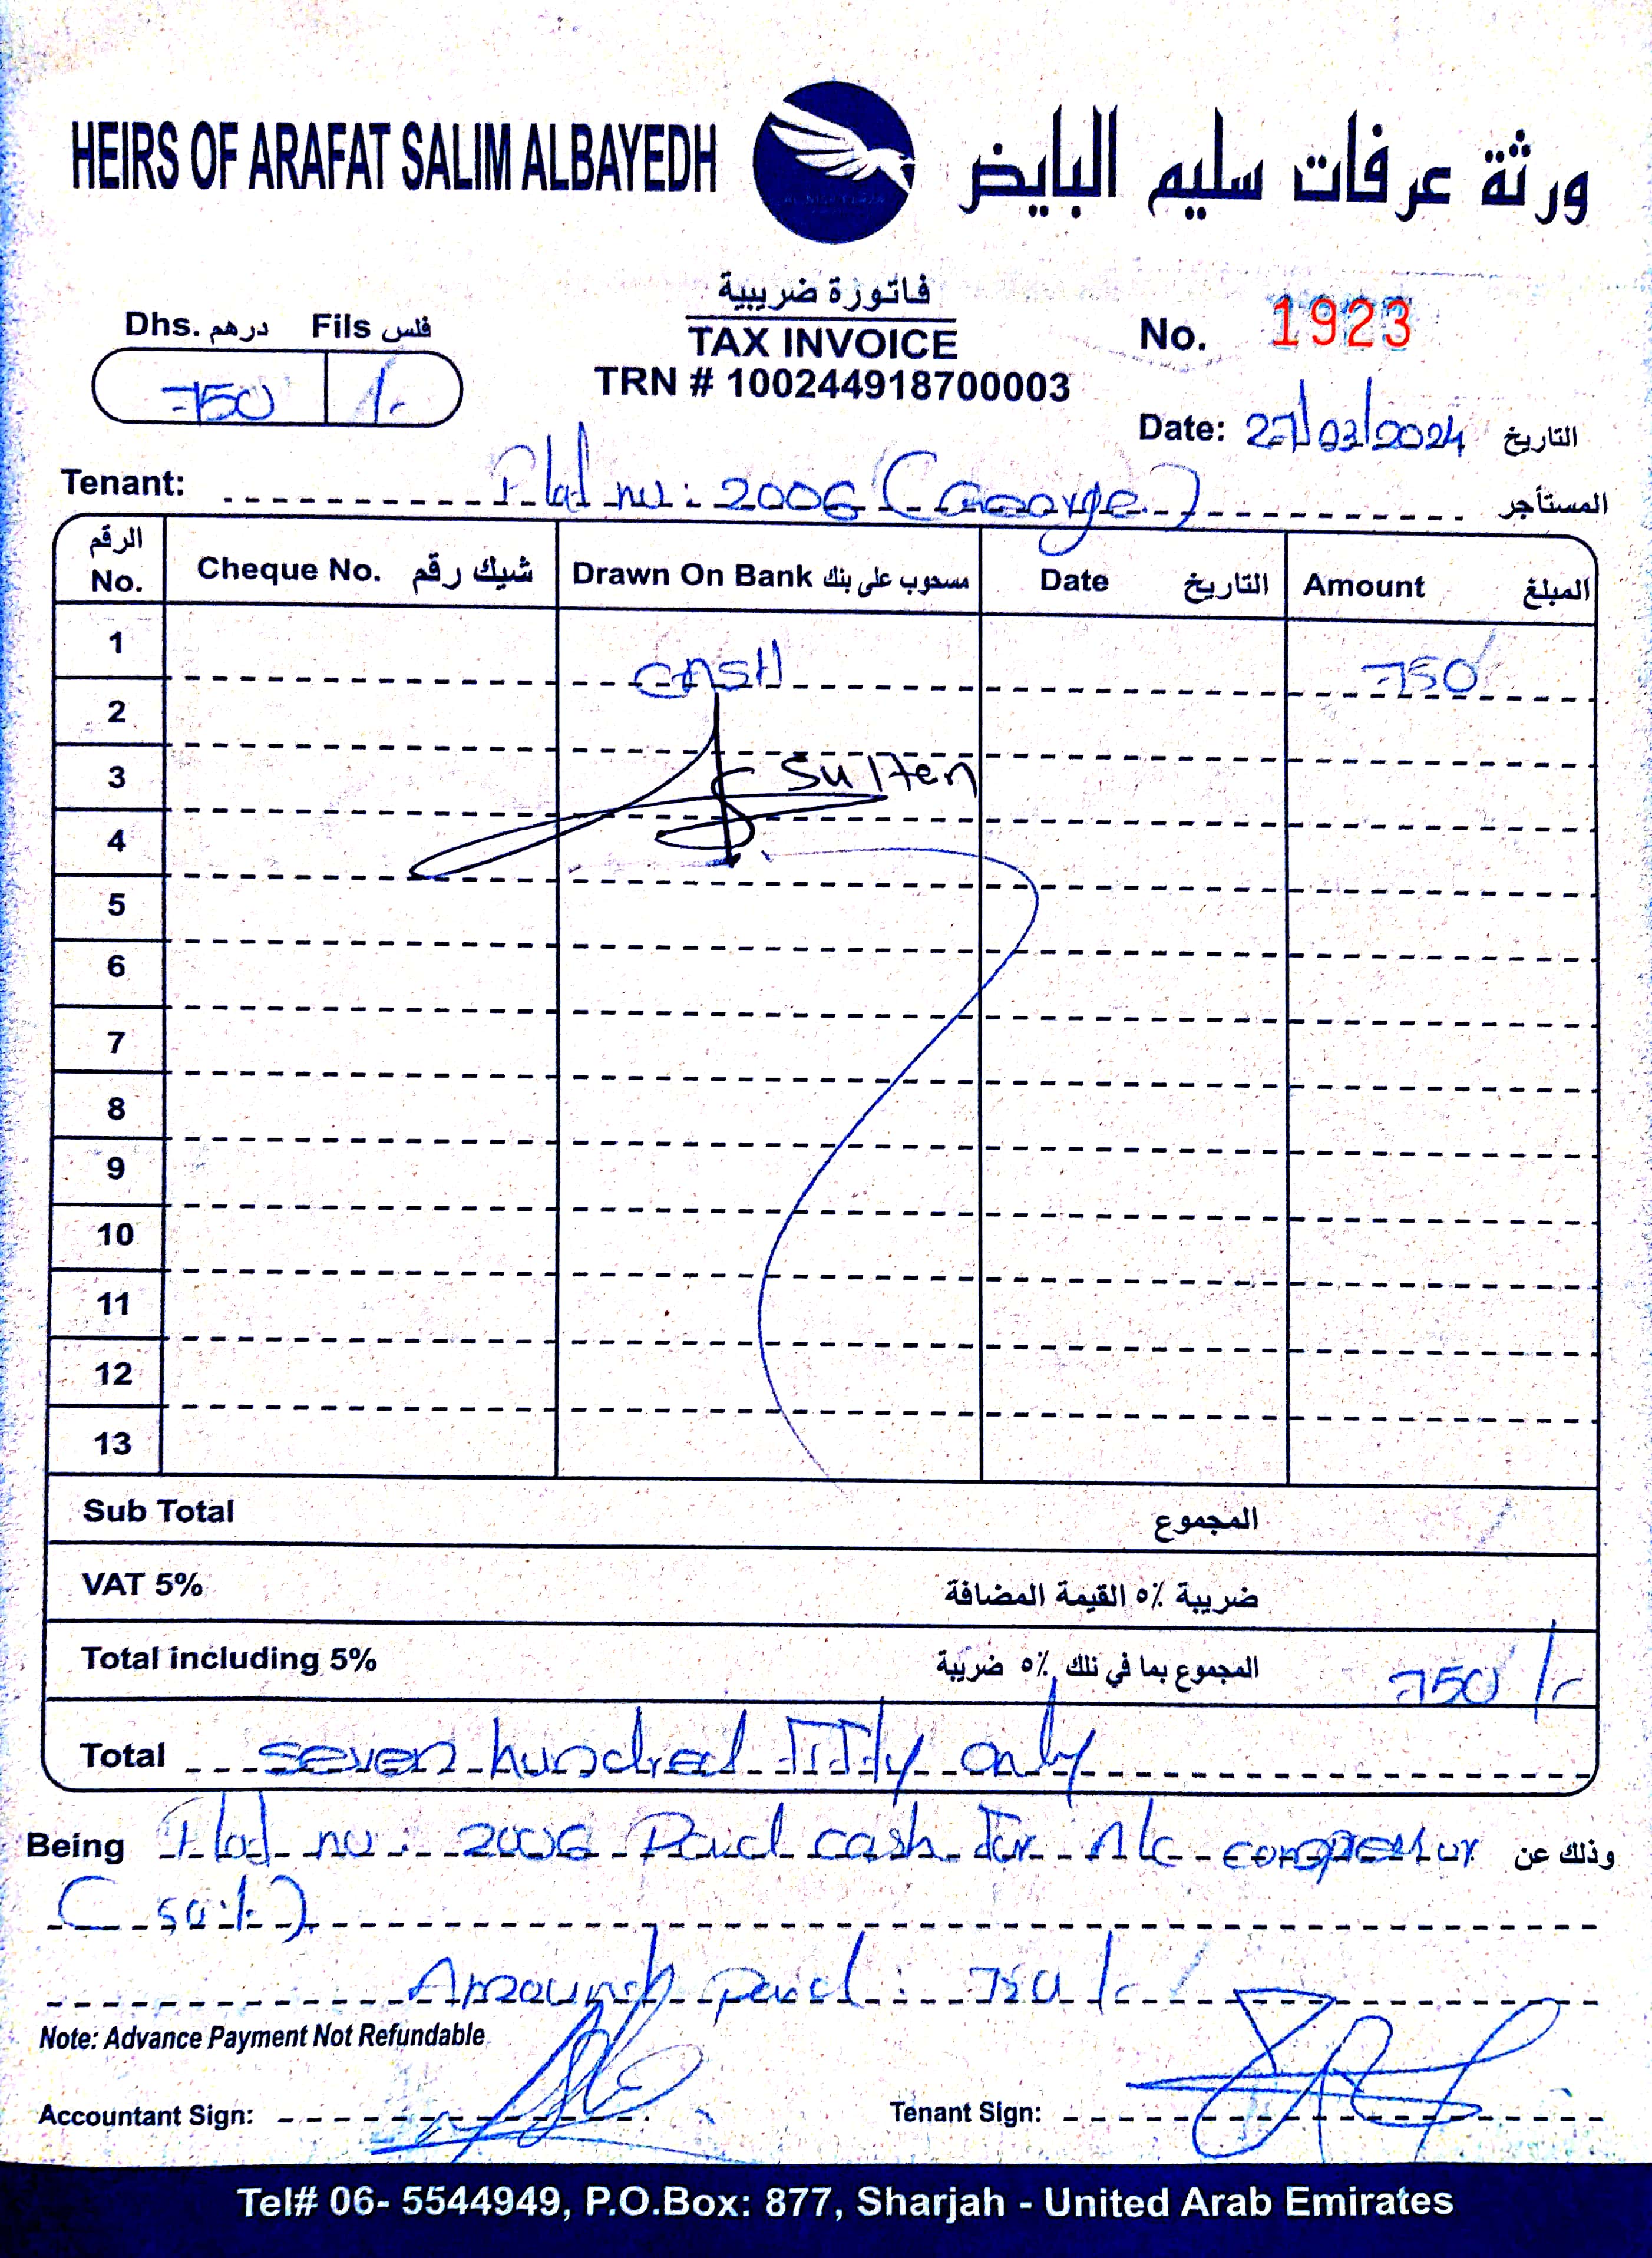 HEIRS OF ARAFAT SALIM ALBAYEDH ورثة عرفات سليم البايض
فاتورة ضريبية
Dhs. درهم Fils فلس TAX INVOICE No. 1923
750 /- TRN # 100244918700003
Date: 27/03/2024 التاريخ
Tenant: Flat no: 2006 (George) المستأجر
الرقم No. Cheque No. شيك رقم Drawn On Bank مسحوب على بنك Date التاريخ Amount المبلغ
1 CASH 750
2
3 Sulten
4
5
6
7
8
9
10
11
12
13
Sub Total المجموع
VAT 5% ضريبة ٥٪ القيمة المضافة
Total including 5% المجموع بما في ذلك ٥٪ ضريبة 750 /-
Total seven hundred fifty only
Being Flat no: 2006 Paid cash for A/c compressor وذلك عن
(50%)
Amount paid: 750 /-
Note: Advance Payment Not Refundable
Accountant Sign: Tenant Sign:
Tel# 06- 5544949, P.O.Box: 877, Sharjah - United Arab Emirates